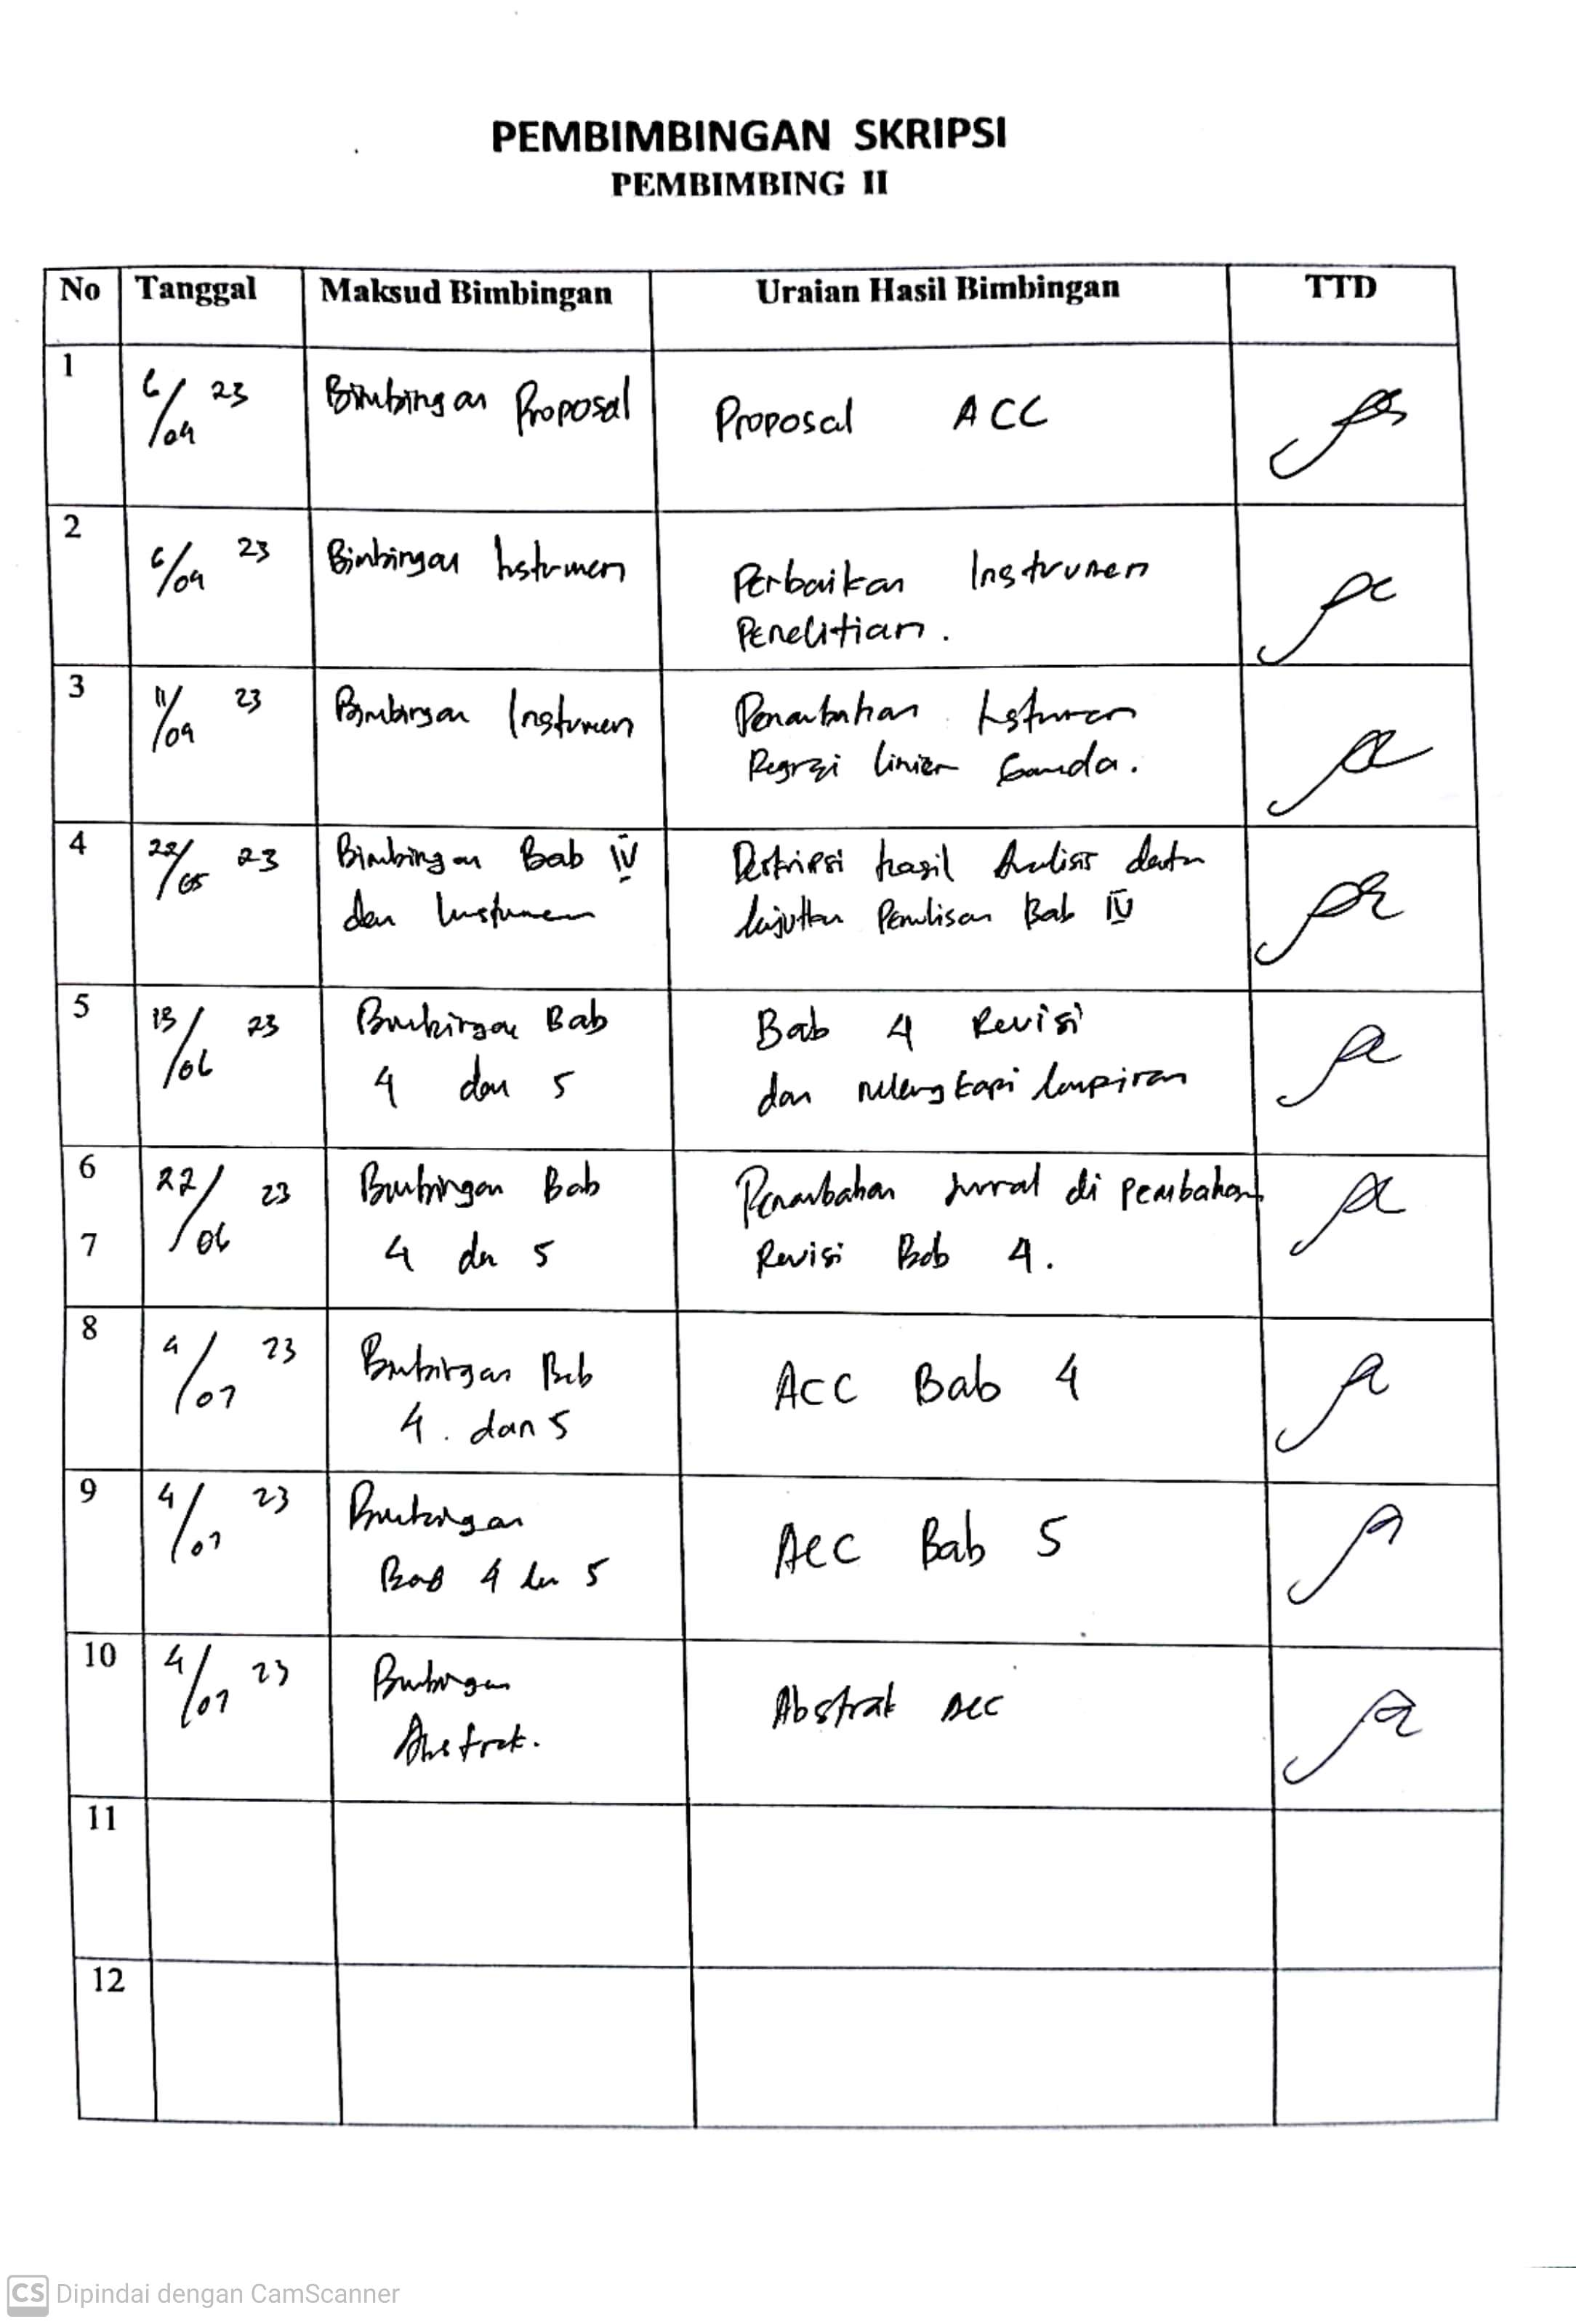 PEMBIMBINGAN SKRIPSI
PEMBIMBING II
No Tanggal Maksud Bimbingan Uraian Hasil Bimbingan TTD
1 6/04 23 Bimbingan Proposal Proposal ACC
2 6/04 23 Bimbingan Instrumen Perbaikan Instrumen
Penelitian.
3 11/04 23 Bimbingan Instrumen Penambahan Instrumen
Regresi linier Ganda.
4 22/05 23 Bimbingan Bab IV Deskripsi hasil Analisis data
dan Instrumen lanjutkan Penulisan Bab IV
5 13/06 23 Bimbingan Bab Bab 4 Revisi
4 dan 5 dan melengkapi lampiran
6 22/06 23 Bimbingan Bab Penambahan Jurnal di pembahasan
7 4 dan 5 Revisi Bab 4.
8 4/07 23 Bimbingan Bab ACC Bab 4
4. dan 5
9 4/07 23 Bimbingan ACC Bab 5
Bab 4 dan 5
10 4/07 23 Bimbingan Abstrak ACC
Abstrak.
11
12
CS Dipindai dengan CamScanner